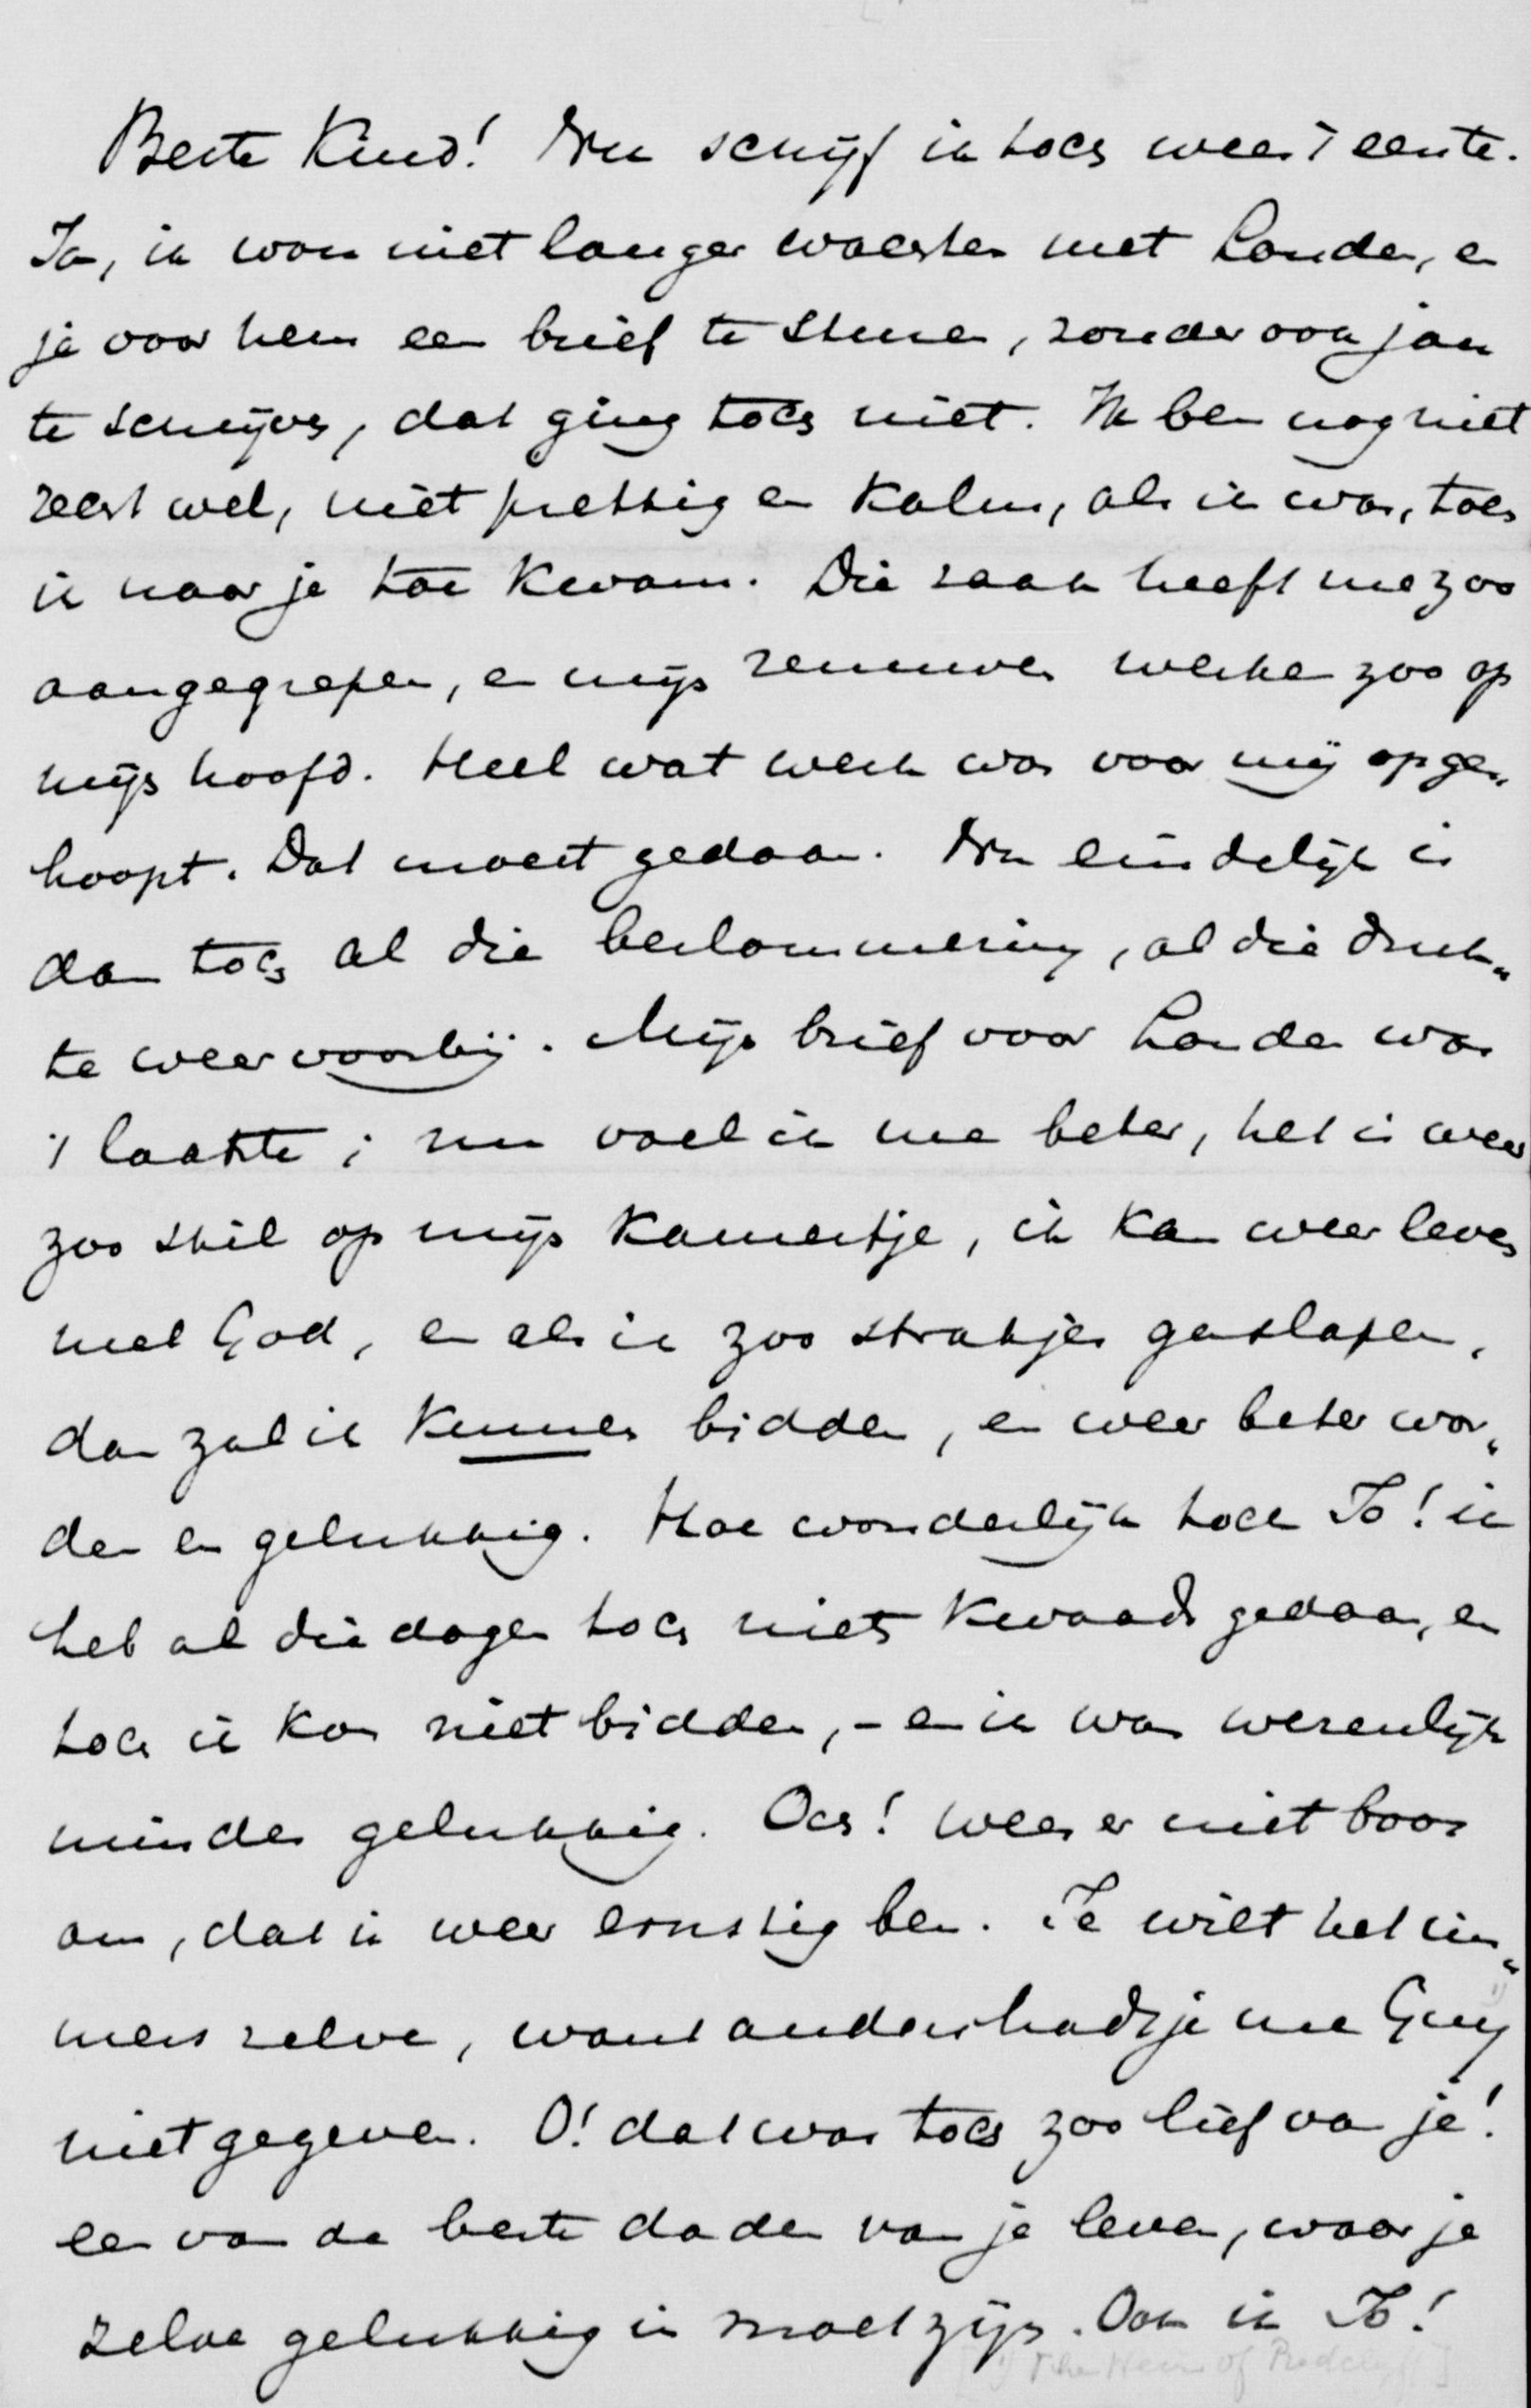 Beste Kind! Nu schrijf ik toch weer 't eerste.
Ja, ik wou niet langer wachten met Londen, en
je voor hem een brief te sturen, zonder ook jou
te schrijven, dat ging toch niet. Ik ben nog niet
recht wel, niet prettig en kalm, als ik was, toen
ik naar je toe kwam. Die zaak heeft me zoo
aangegrepen, en mijn zenuwen werken zoo op
mijn hoofd. Heel wat werk was voor mij opge„
hoopt. Dat moest gedaan. Nu eindelijk is
dan toch al die beslommering, al die druk„
te weer voorbij. Mijn brief voor Londen was
't laatste; nu voel ik me beter, het is weer
zoo stil op mijn kamertje, ik kan weer leven
met God, en als ik zoo strakjes ga slapen,
dan zal ik kunnen bidden, en weer beter wor„
den en gelukkig. Hoe wonderlijk toch To! ik
heb al die dagen toch niets kwaads gedaan, en
toch ik kon niet bidden, – en ik was wezenlijk
minder gelukkig. Och! wees er niet boos
om, dat ik weer ernstig ben. Je wilt het im„
mers zelve, want anders hadt je me Guy
niet gegeven. O! dat was toch zoo lief van je!
een van de beste daden van je leven, waar je
zelve gelukkig in moet zijn. Ook ik To!
[1) The Heir of Redclyffe]